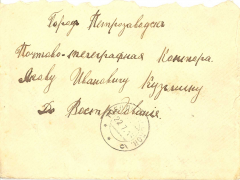 Городъ Петрозаводскъ
Почтово-телеграфная Контора.
Якову Ивановичу Кузьмину
До Востребованія.